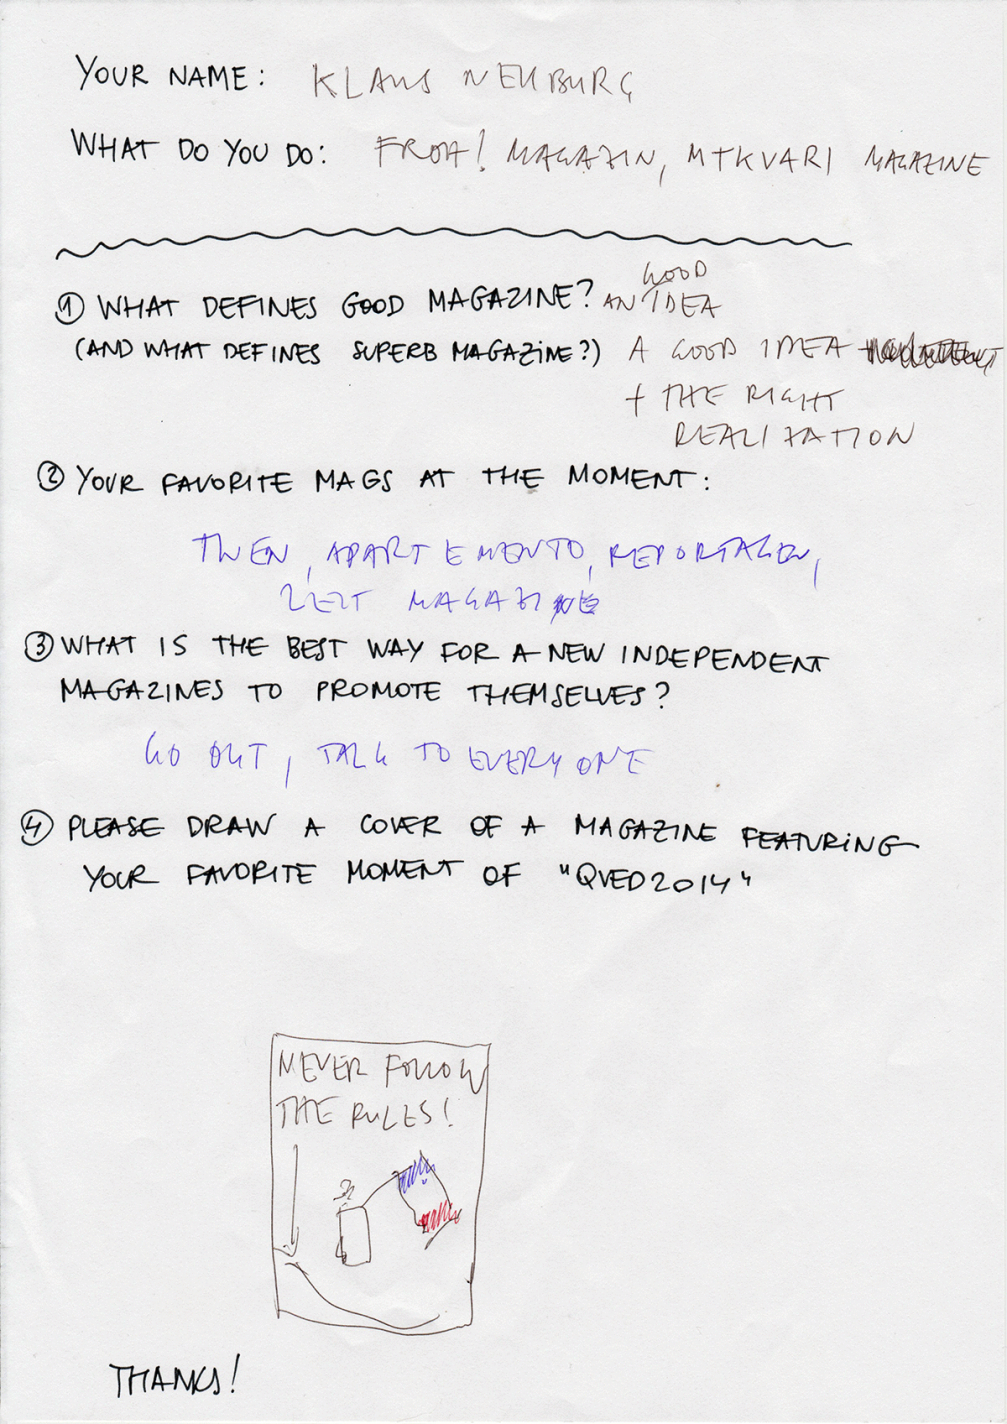 YOUR NAME: KLAUS NEUBURG
WHAT DO YOU DO: FROH! MAGAZIN, MTKVARI MAGAZINE
① WHAT DEFINES GOOD MAGAZINE? AN GOOD IDEA
(AND WHAT DEFINES SUPERB MAGAZINE?) A GOOD IDEA
+ THE RIGHT
REALIZATION
② YOUR FAVORITE MAGS AT THE MOMENT:
THEN, APARTEMENTO, REPORTAGEN,
ZEIT MAGAZINE
③ WHAT IS THE BEST WAY FOR A NEW INDEPENDENT
MAGAZINES TO PROMOTE THEMSELVES?
GO OUT, TALK TO EVERYONE
④ PLEASE DRAW A COVER OF A MAGAZINE FEATURING
YOUR FAVORITE MOMENT OF "QVED2014"
NEVER FOLLOW
THE RULES!
THANKS!